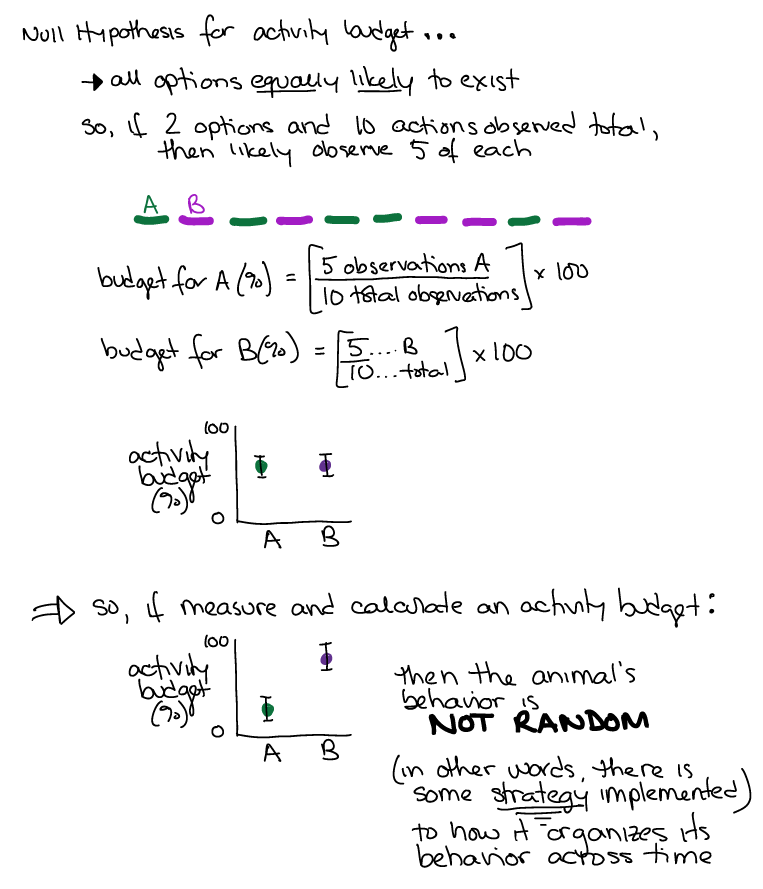 Null Hypothesis for activity budget...
→ all options equally likely to exist
so, if 2 options and 10 actions observed total,
then likely observe 5 of each
A B
budget for A (%) = [5 observations A / 10 total observations] × 100
budget for B (%) = [5....B / 10...total] × 100
100
activity
budget
(%)
0
A B
⇒ so, if measure and calculate an activity budget:
100
activity
budget
(%)
0
A B
then the animal's
behavior is
NOT RANDOM
(in other words, there is
some strategy implemented)
to how it organizes its
behavior across time